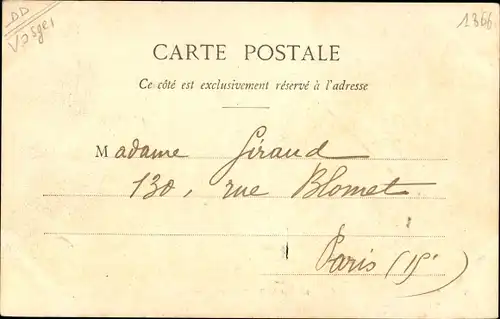 DD
Vosges
1366
CARTE POSTALE
Ce côté est exclusivement réservé à l'adresse
Madame Giraud
130, rue Blomet
Paris (15e)